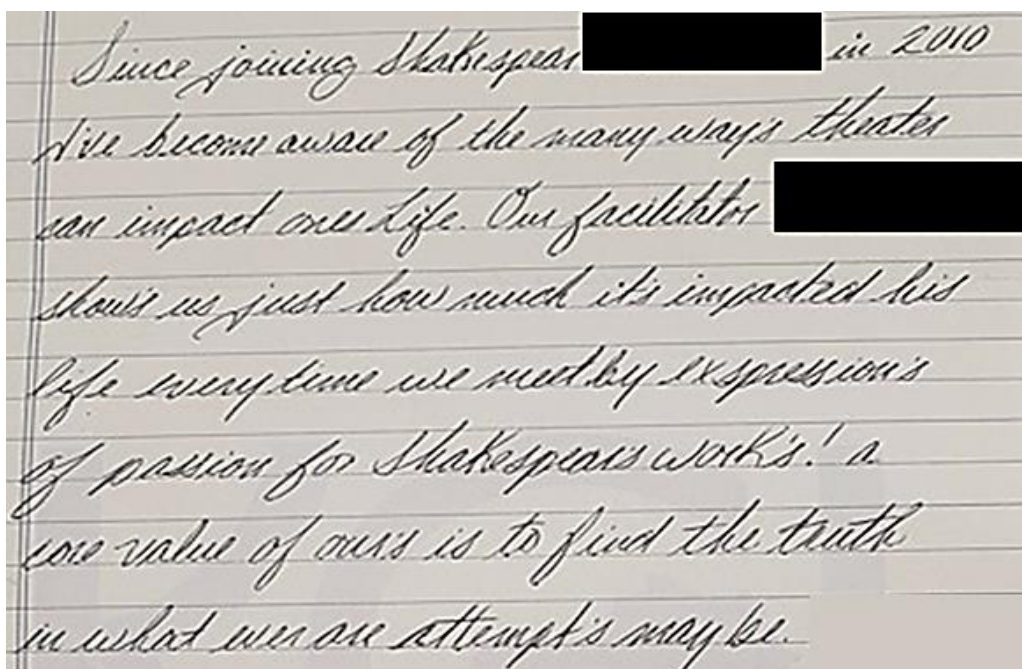 Since joining Shakespear in 2010
I've become aware of the many way's theater
can impact ones Life. Our facilitator
show's us just how much it's impacted his
life everytime we meet by exspression's
of passion for Shakespears work's! a
core value of our's is to find the truth
in what ever are attempt's may be.